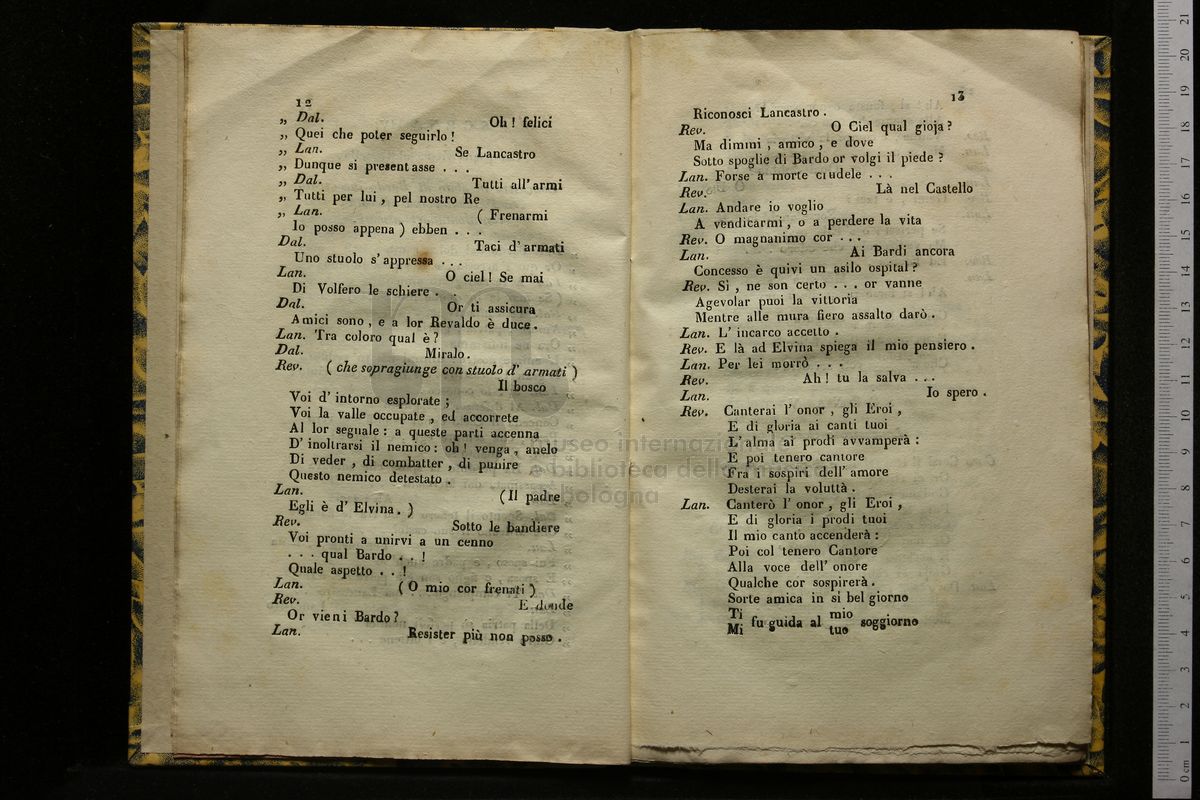 12
„ Dal. Oh! felici
„ Quei che poter seguirlo!
„ Lan. Se Lancastro
„ Dunque si presentasse . . .
„ Dal. Tutti all' armi
„ Tutti per lui, pel nostro Re
„ Lan. ( Frenarmi
Io posso appena ) ebben . . .
Dal. Taci d' armati
Uno stuolo s' appressa . . .
Lan. O ciel! Se mai
Di Volfero le schiere . .
Dal. Or ti assicura
Amici sono, e a lor Revaldo è duce.
Lan. Tra coloro qual è?
Dal. Miralo.
Rev. ( che sopragiunge con stuolo d' armati )
Il bosco
Voi d' intorno esplorate;
Voi la valle occupate, ed accorrete
Al lor segnale: a queste parti accenna
D' inoltrarsi il nemico: oh! venga, anelo
Di veder, di combatter, di punire
Questo nemico detestato.
Lan. (Il padre
Egli è d' Elvina. )
Rev. Sotto le bandiere
Voi pronti a unirvi a un cenno
. . . qual Bardo . . !
Quale aspetto . . !
Lan. ( O mio cor frenati )
Rev. E donde
Or vieni Bardo?
Lan. Resister più non posso.
13
Riconosci Lancastro.
Rev. O Ciel qual gioja?
Ma dimmi, amico, e dove
Sotto spoglie di Bardo or volgi il piede?
Lan. Forse a morte crudele . . .
Rev. Là nel Castello
Lan. Andare io voglio
A vendicarmi, o a perdere la vita
Rev. O magnanimo cor . . .
Lan. Ai Bardi ancora
Concesso è quivi un asilo ospital?
Rev. Sì, ne son certo . . . or vanne
Agevolar puoi la vittoria
Mentre alle mura fiero assalto darò.
Lan. L' incarco accetto.
Rev. E là ad Elvina spiega il mio pensiero.
Lan. Per lei morrò . . .
Rev. Ah! tu la salva . . .
Lan. Io spero.
Rev. Canterai l' onor, gli Eroi,
E di gloria ai canti tuoi
L' alma ai prodi avvamperà:
E poi tenero cantore
Fra i sospiri dell' amore
Desterai la voluttà.
Lan. Canterò l' onor, gli Eroi,
E di gloria i prodi tuoi
Il mio canto accenderà:
Poi col tenero Cantore
Alla voce dell' onore
Qualche cor sospirerà.
Sorte amica in sì bel giorno
Ti mio
fu guida al soggiorno
Mi tuo
museo internazio
e biblioteca della musica
bologna
0 cm 1 2 3 4 5 6 7 8 9 10 11 12 13 14 15 16 17 18 19 20 21